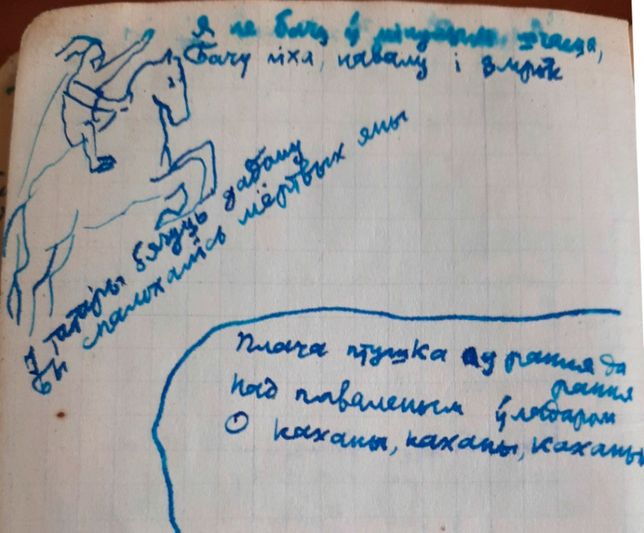 Я не бачу ў мінулым шчасця,
Бачу ліхя, навалу і змрок
І татары бягуць дадому
Бы спалохаліся мёртвых яны
Плача птушка ад рання да рання
над паваленым ўладаром
О каханы, каханы, каханы